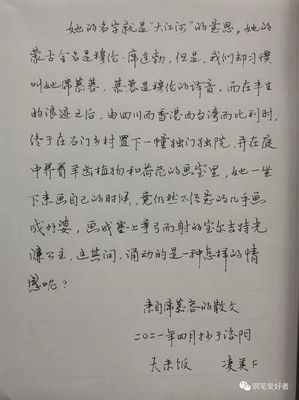 她的名字就是“大江河”的意思，她的
蒙古全名是穆伦·席连勃，但是，我们却习惯
叫她席慕蓉，慕蓉是穆伦的译音。而在半生
的浪迹之后，由四川而香港而台湾而比利时，
终于在石门乡村置下一幢独门独院，并在庭
中养着羊齿植物和荷花的画室里，她一坐
下来画自己的时候，竟仍然不经意的几笔画
成外婆，画成塞上弯弓而射的宝尔吉特光
濂公主，这其间，涌动的是一种怎样的情
感呢？
来自席慕蓉的散文
二〇二一年四月抄于洛阳
凌美F
钢笔爱好者